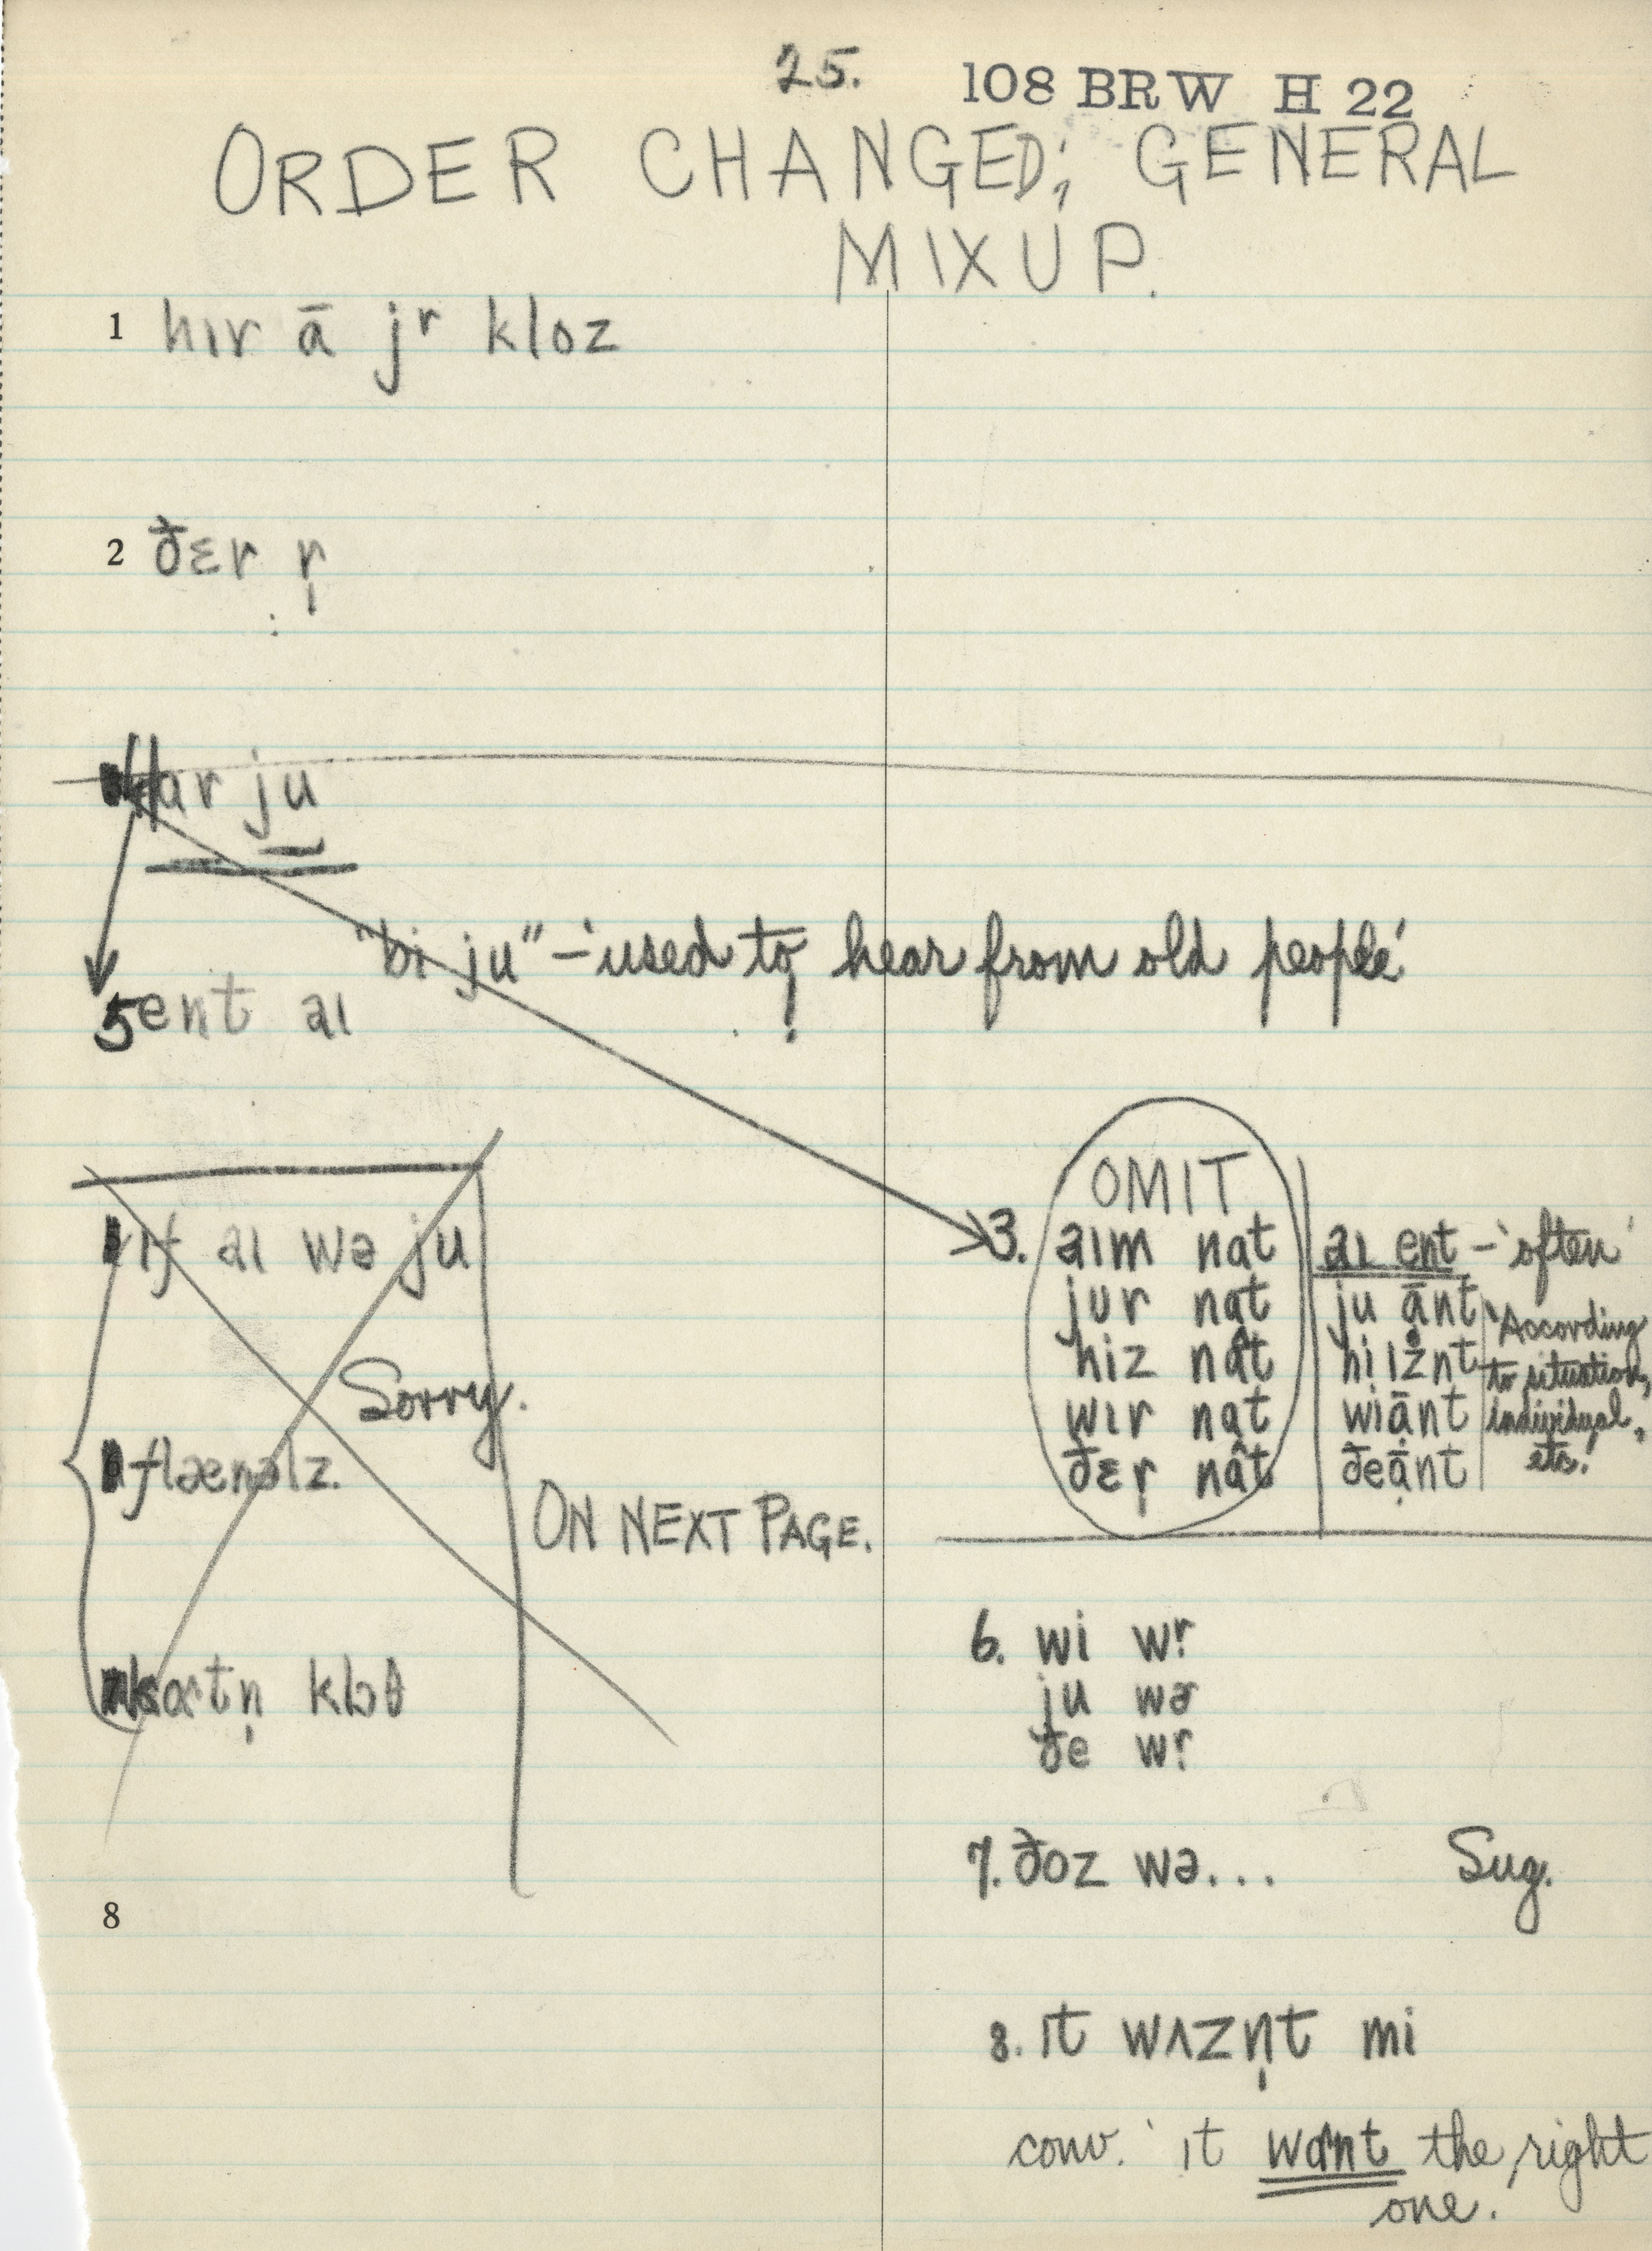 25. 108 BRW H 22
ORDER CHANGED; GENERAL
MIXUP.
1 hɪr ā jr kloz
2 ðɛr r̩
ɑr ju
"bi ju" – 'used to hear from old people'
5 ent aɪ
ɪf aɪ wə ju
Sorry.
flænəlz.
ON NEXT PAGE.
klɔθ
8
OMIT
3. aɪm nat aɪ ent – 'often'
jʊr nat ju ānt 'According
hiz nat hi ɪznt to situation,
wɪr nat wi ānt individual,
ðɛr nat ðe ānt etc.'
6. wi wr
ju wə
ðe wr
7. ðoz wə... Sug.
8. ɪt wʌzn̩t mi
conv. 'ɪt wɑnt the right
one.'